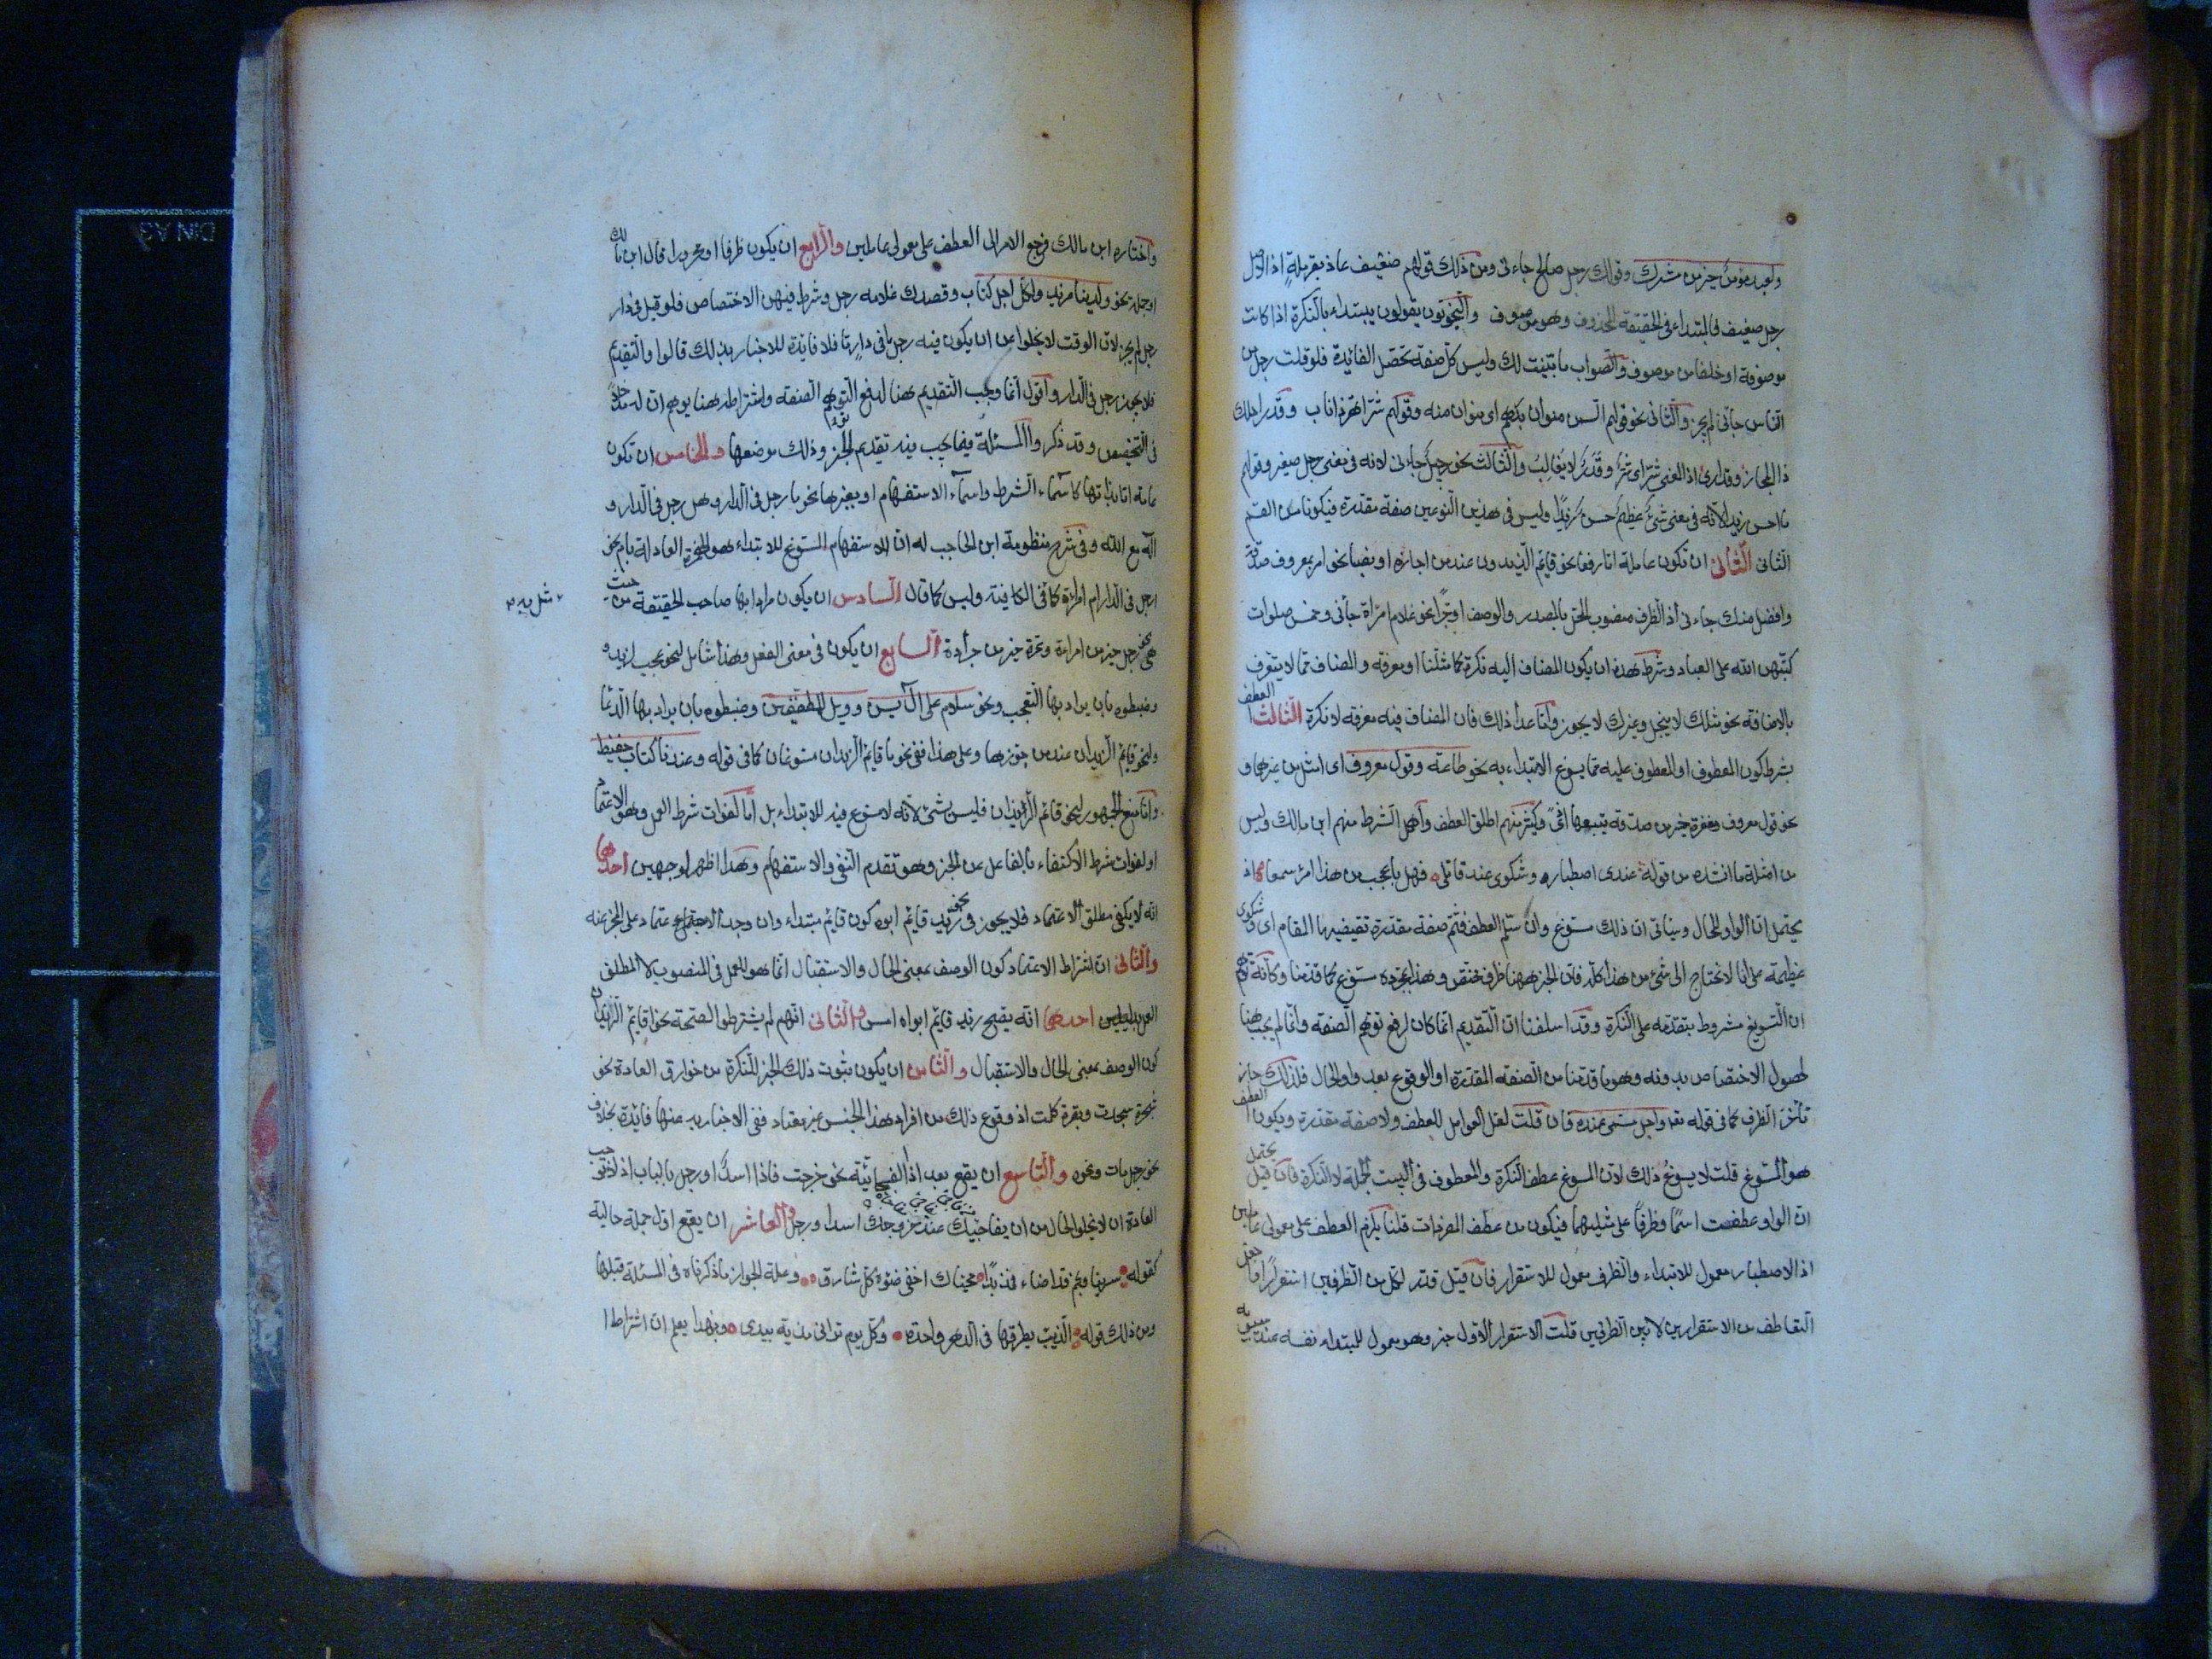 ولعبد مؤمن خير من مشرك وقولك رجل صالح جاءنى ومن ذلك قولهم ضعيف عاذ بقرملة اذ الاصل
رجل ضعيف فالمبتداء فى الحقيقة المحذوف وهو موصوف والنحويون يقولون يبتداء بالنكرة اذا كانت
موصوفة او خلفا من موصوف والصواب ما بينت لك وليس كل صفة تحصل الفائدة فلو قلت رجل من
الناس جانى لم يجز والثانى نحو قولهم السمن منوان بدرهم اى منوان منه وقولهم شر اهر ذا ناب وقدر احلك
ذا المجاز وقد ارى اذ المعنى شر اى شر وقدر لا يغالب والثالث نحو رجيل جاءنى لانه فى معنى رجل صغير وقولهم
ما احسن زيدا لانه فى معنى شئ عظيم حسن زيدا وليس فى هذين النوعين صفة مقدرة فيكونا من القسم
الثانى الثانى ان تكون عاملة اما رفعا نحو قايم الزيدون عند من اجازه او نصبا نحو امر بمعروف صدقة
وافضل منك جاءنى اذ الظرف منصوب المحل بالمصدر والوصف او جرا نحو غلام امراة جآنى وخمس صلوات
كتبهن الله على العباد وشرط هذه ان يكون المضاف اليه نكرة كما مثلنا او معرفة والمضاف مما لا يتعرف
بالاضافة نحو مثلك لا يبخل وغيرك لا يجود واما عدا ذلك فان المضاف فيه معرفة لا نكرة الثالث العطف
بشرط كون المعطوف او المعطوف عليه مما يسوغ الابتداء به نحو طاعة وقول معروف اى امثل من غيرهما و
نحو قول معروف ومغفرة خير من صدقة يتبعها اذى وكثير منهم اطلق العطف واهمل الشرط منهم ابن مالك وليس
من امثلة ما انشده من قوله عندى اصطبار وشكوى عند قاتلتى فهل باعجب من هذا امرؤ سمعا اذ
يحتمل ان الواو للحال وسياتى ان ذلك مسوغ وان سلم العطف فثم صفة مقدرة تقتضيها المقام اى وشكوى
عظيمة على انا لا نحتاج الى شئ من هذا كله فان الخبر ههنا ظرف مختص وهذا بمجرده مسوغ كما قدمنا وكانه توهم
ان التسويغ مشروط بتقدمه على النكرة وقد اسلفنا ان التقديم انما كان لرفع توهم الصفة وانما لم يجب هنا
لحصول الاختصاص بدونه وهو ما قدمنا من الصفة المقدرة او الوقوع بعد واو الحال فلذلك جاز
تأخر الظرف كما فى قوله تعه واجل مسمى عنده فان قلت لعل الواو للعطف ولا صفة مقدرة ويكون العطف
هو المسوغ قلت لا يسوغ ذلك لان المسوغ عطف النكرة والمعطوف فى البيت الجملة لا النكرة فان قيل يحتمل
ان الواو عطفت اسما وظرفا على مثليهما فيكون من عطف المفردات قلنا يلزم العطف على معمولى عاملين
اذ الاصطبار معمول للابتداء والظرف معمول للاستقرار فان قيل قدر لكل من الظرفين استقرارا واجعل
التعاطف من الاستقرارين لا بين الظرفين قلت الاستقرار الاول خبر وهو معمول للمبتداء نفسه عند سيبويه
واختاره ابن مالك فرجع الامر الى العطف على معمولى عاملين والرابع ان يكون ظرفا او مجرورا قال ابن مالك
او جملة نحو ولدينا مزيد ولكل اجل كتاب وقصدك غلامه رجل وشرط فيهن الاختصاص فلو قيل فى دار
رجل لم يجز لان الوقت لا يخلوا عن ان يكون فيه رجل ما فى دار ما فلا فائدة للاخبار بذلك قالوا والتقديم
فلا يجوز رجل فى الدار واقول انما وجب التقديم هنا لدفع التوهم الصفة واشتراطه هنا يوهم ان له مدخلا
فى التخصيص وقد ذكروا المسئلة فيما يجب فيه تقديم الخبر وذلك موضعها والخامس ان تكون
عامة اما بذاتها كاسماء الشرط واسماء الاستفهام او بغيرها نحو ما رجل فى الدار وهل رجل فى الدار و
اله مع الله وفى شرح منظومة ابن الحاجب له ان الاستفهام المسوغ للابتداء هو الهمزة المعادلة بام نحو
ارجل فى الدار ام امراة كما فى الكافية وليس كما قال السادس ان يكون مرادا بها صاحب الحقيقة من حيث
هى نحو رجل خير من امراءة وتمرة خير من جرادة السابع ان يكون فى معنى الفعل وهذا شامل لنحو عجب لزيد و
وضبطوه بان يراد بها التعجب ونحو سلام على ال يس وويل للمطففين وضبطوه بان يراد بها الدعا
ولنحو قايم الزيدان عند من جوزها وعلى هذا ففى نحو ما قايم الزيدان مسوغان كما فى قوله وعندنا كتاب حفيظ
واما منع الجمهور لنحو قائم الزيدان فليس بشئ لانه لا مسوغ فيه للابتداء بل اما لفوات شرط العمل وهو الاعتماد
او لفوات شرط الاكتفاء بالفاعل عن الخبر وهو تقدم النفى والاستفهام وهذا اظهر لوجهين احدهما
انه لا يكفى مطلق الاعتماد فلا يجوز فى نحو زيد قايم ابوه كون قايم مبتداء وان وجد الاعتماد على المخبر عنه
والثانى ان اشتراط الاعتماد كون الوصف بمعنى الحال والاستقبال انما هو للعمل فى المنصوب لا لمطلق
العمل بدليلين احدهما انه يصح زيد قايم ابواه امس والثانى انهم لم يشترطوا لصحة نحو اقايم الزيدان
كون الوصف بمعنى الحال والاستقبال والثامن ان يكون ثبوت ذلك الخبر للنكرة من خوارق العادة نحو
شجرة سجدت وبقرة تكلمت اذ وقوع ذلك من افراد هذا الجنس غير معتاد ففى الاخبار به عنها فائدة بخلاف
نحو رجل مات ونحوه والتاسع ان يقع بعد اذا الفجائية نحو خرجت فاذا اسد او رجل بالباب اذ لا توجب
العادة ان لا يخلو الحال من ان يفاجئك عند خروجك اسد او رجل والعاشر ان يقع اول جملة حالية
كقوله سرينا ونجم قد اضاء فمذ بدا محياك اخفى ضوءه كل شارق وعلة الجواز ما ذكرناه فى المسئلة قبلها
ومن ذلك قوله الذئب يطرقها فى الدهر واحدة وكل يوم ترانى مدية بيدى وبهذا يعلم ان اشتراط ا